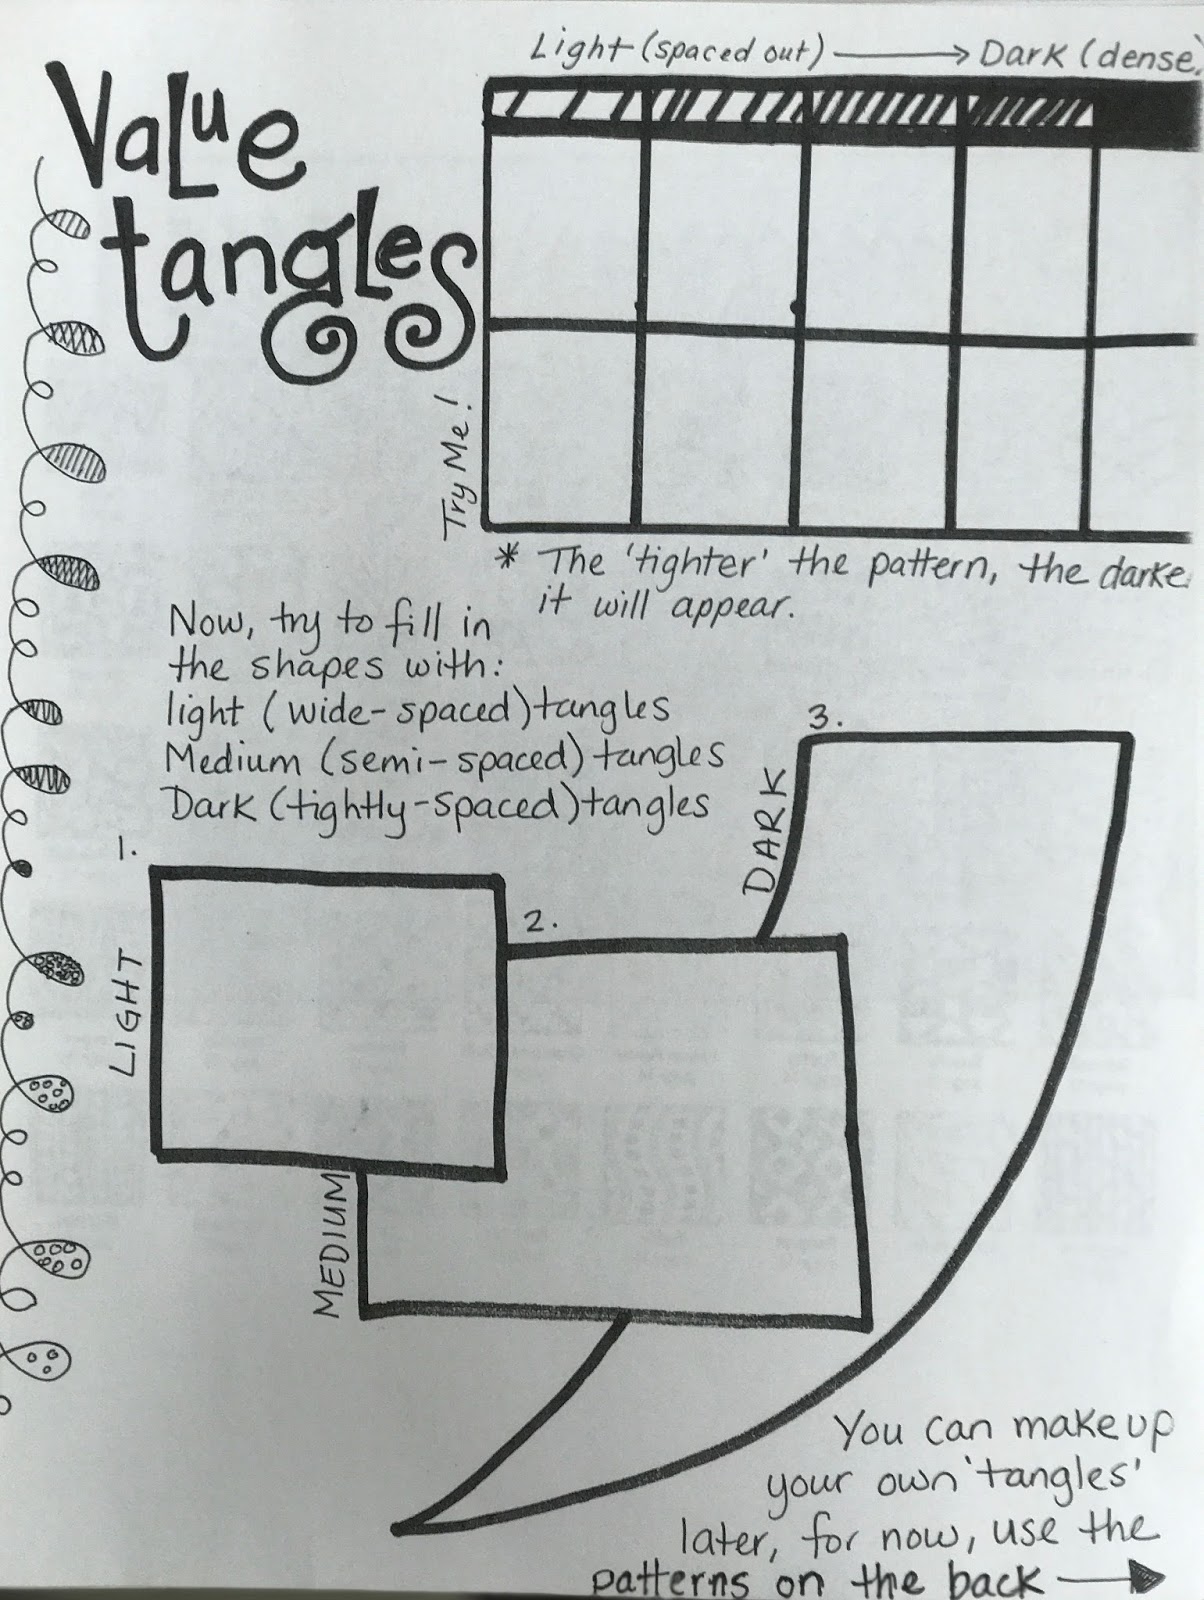 Value
tangles
Light (spaced out) → Dark (dense)
Try Me!
* The 'tighter' the pattern, the darke
it will appear.
Now, try to fill in
the shapes with:
light (wide-spaced) tangles
Medium (semi-spaced) tangles
Dark (tightly-spaced) tangles
1.
LIGHT
2.
MEDIUM
3.
DARK
You can make up
your own 'tangles'
later, for now, use the
patterns on the back →